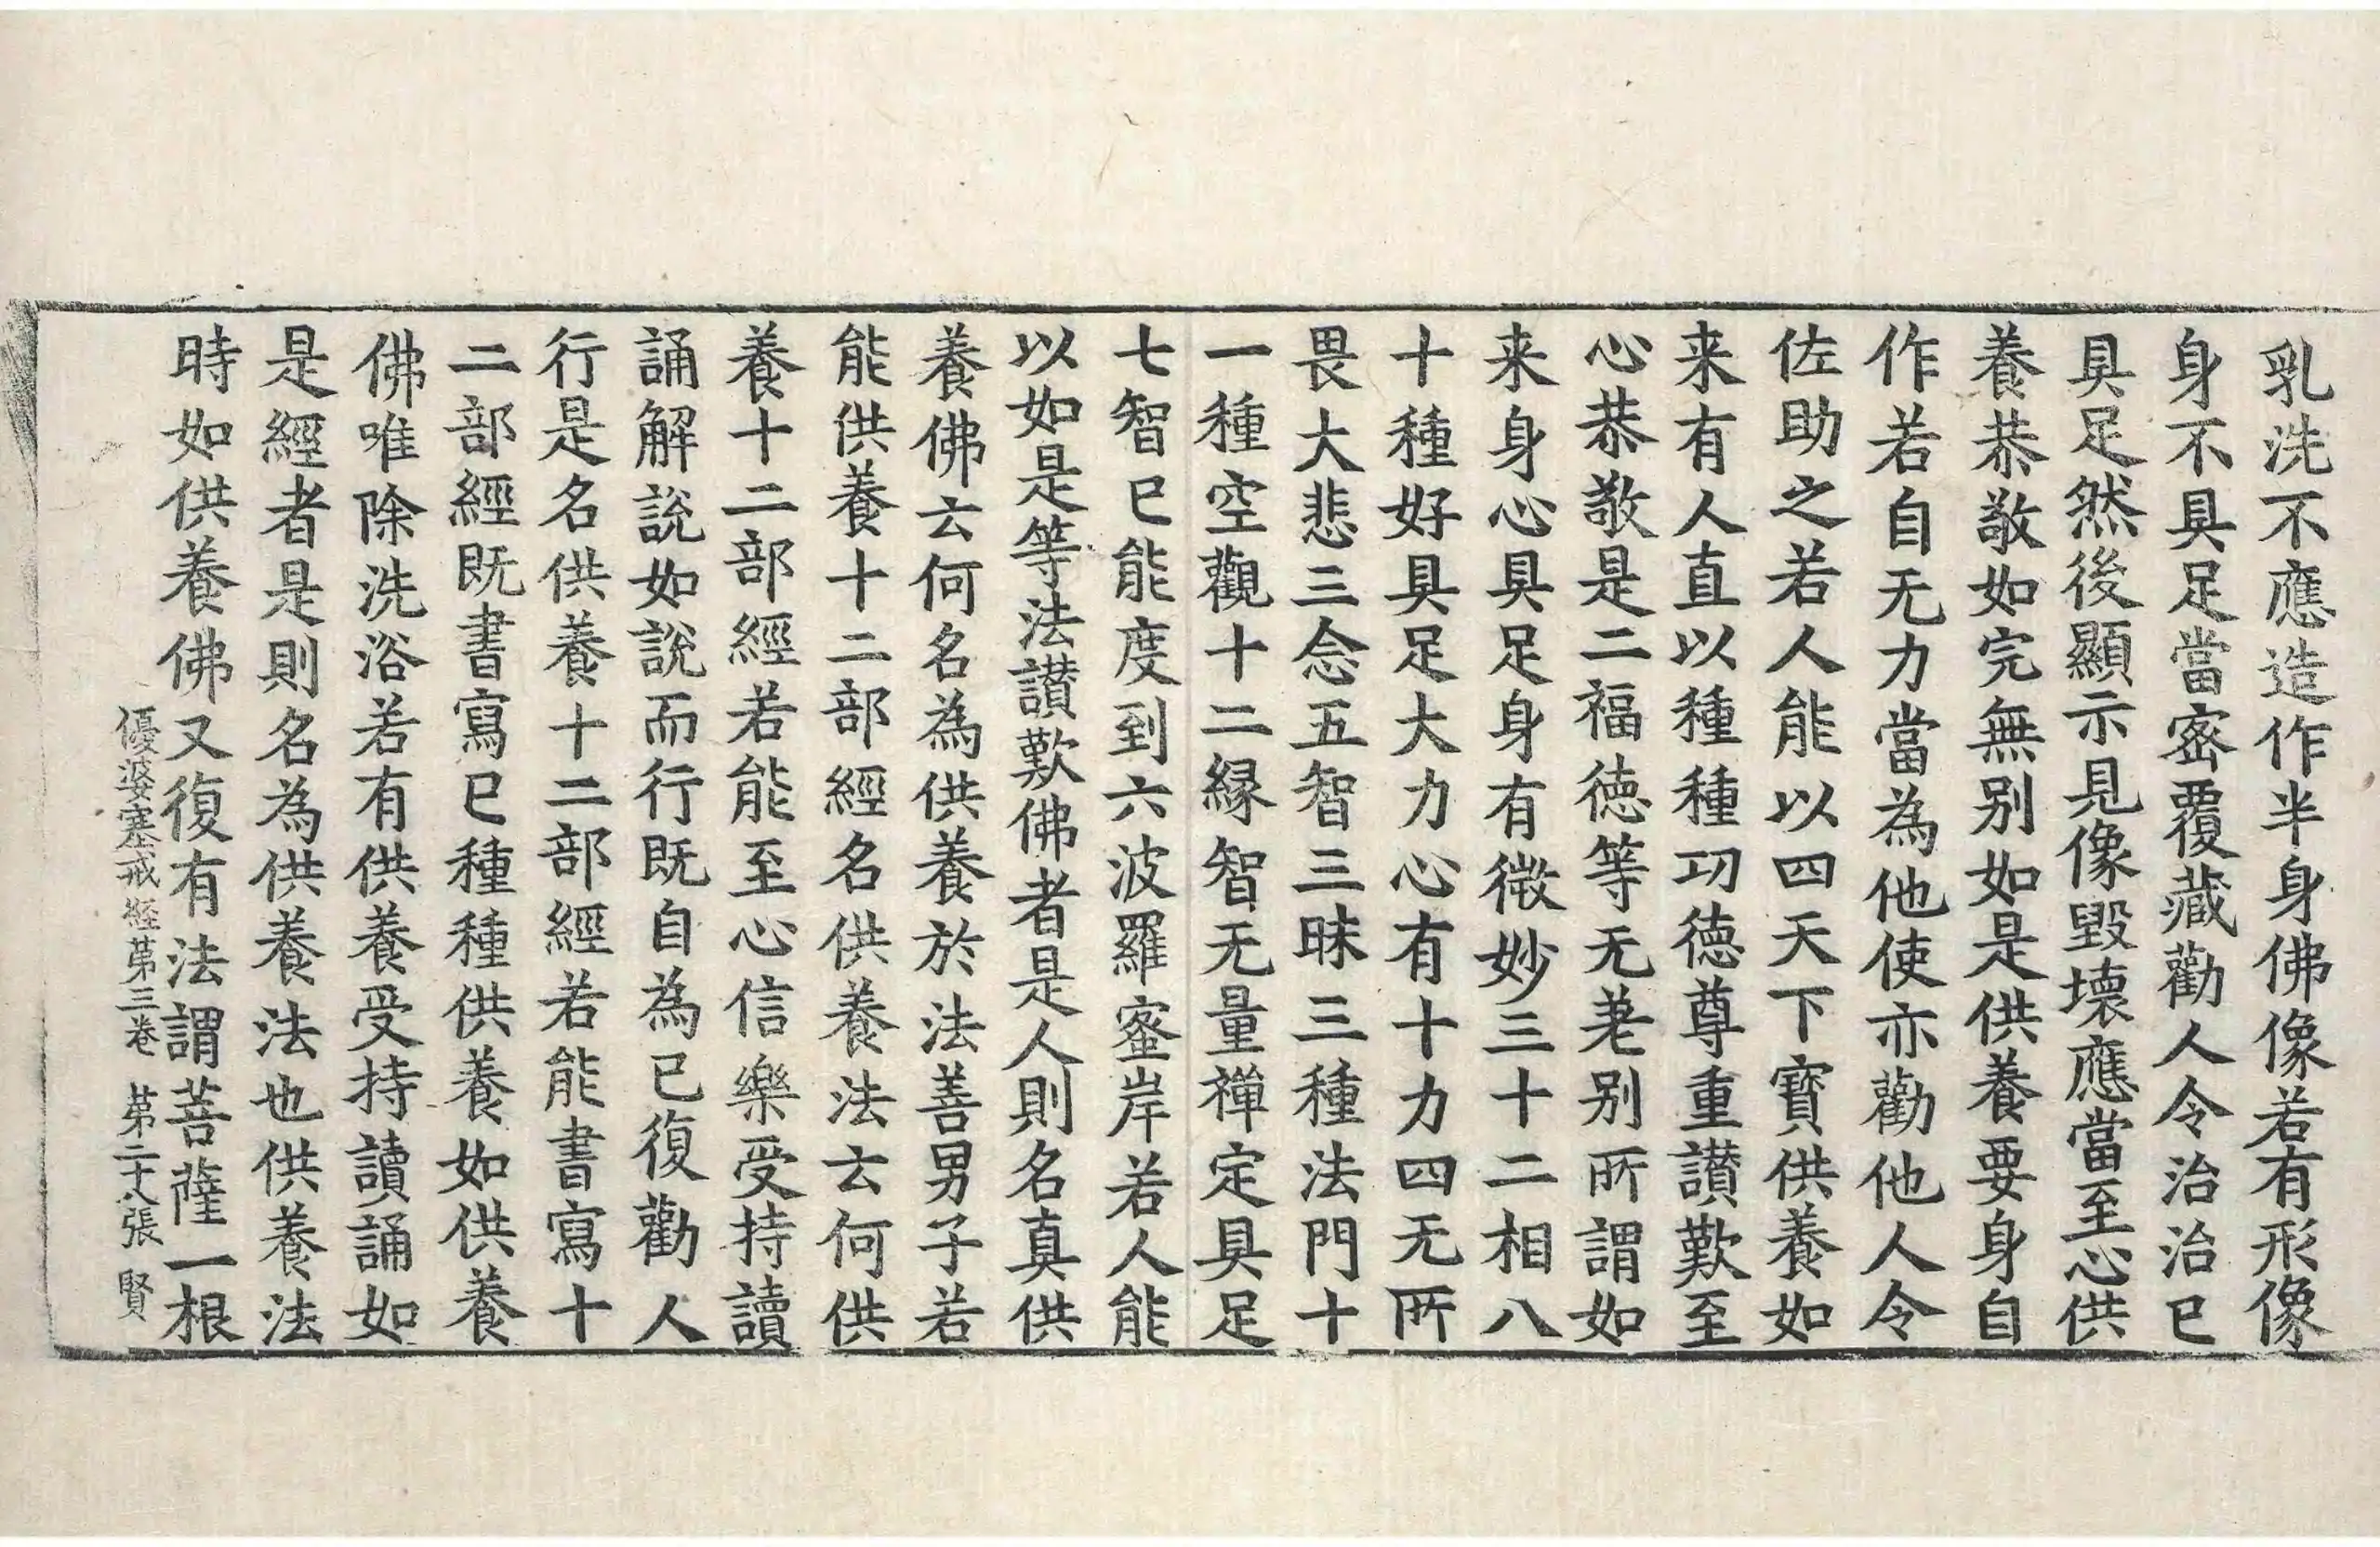 乳洗不應造作半身佛像若有形像
身不具足當密覆藏勸人令治治已
具足然後顯示見像毀壞應當至心供
養恭敬如完無別如是供養要身自
作若自无力當為他使亦勸他人令
佐助之若人能以四天下寶供養如
来有人直以種種功德尊重讃歎至
心恭敬是二福徳等无差别所謂如
来身心具足身有微妙三十二相八
十種好具足大力心有十力四无所
畏大悲三念五智三昧三種法門十
一種空觀十二縁智无量禪定具足
七智已能度到六波羅蜜岸若人能
以如是等法讃歎佛者是人則名真供
養佛云何名為供養於法善男子若
能供養十二部經名供養法云何供
養十二部經若能至心信樂受持讀
誦解說如說而行既自為已復勸人
行是名供養十二部經若能書寫十
二部經既書寫已種種供養如供養
佛唯除洗浴若有供養受持讀誦如
是經者是則名為供養法也供養法
時如供養佛又復有法謂菩薩一根
優婆塞戒經第三卷 第二十八張 賢